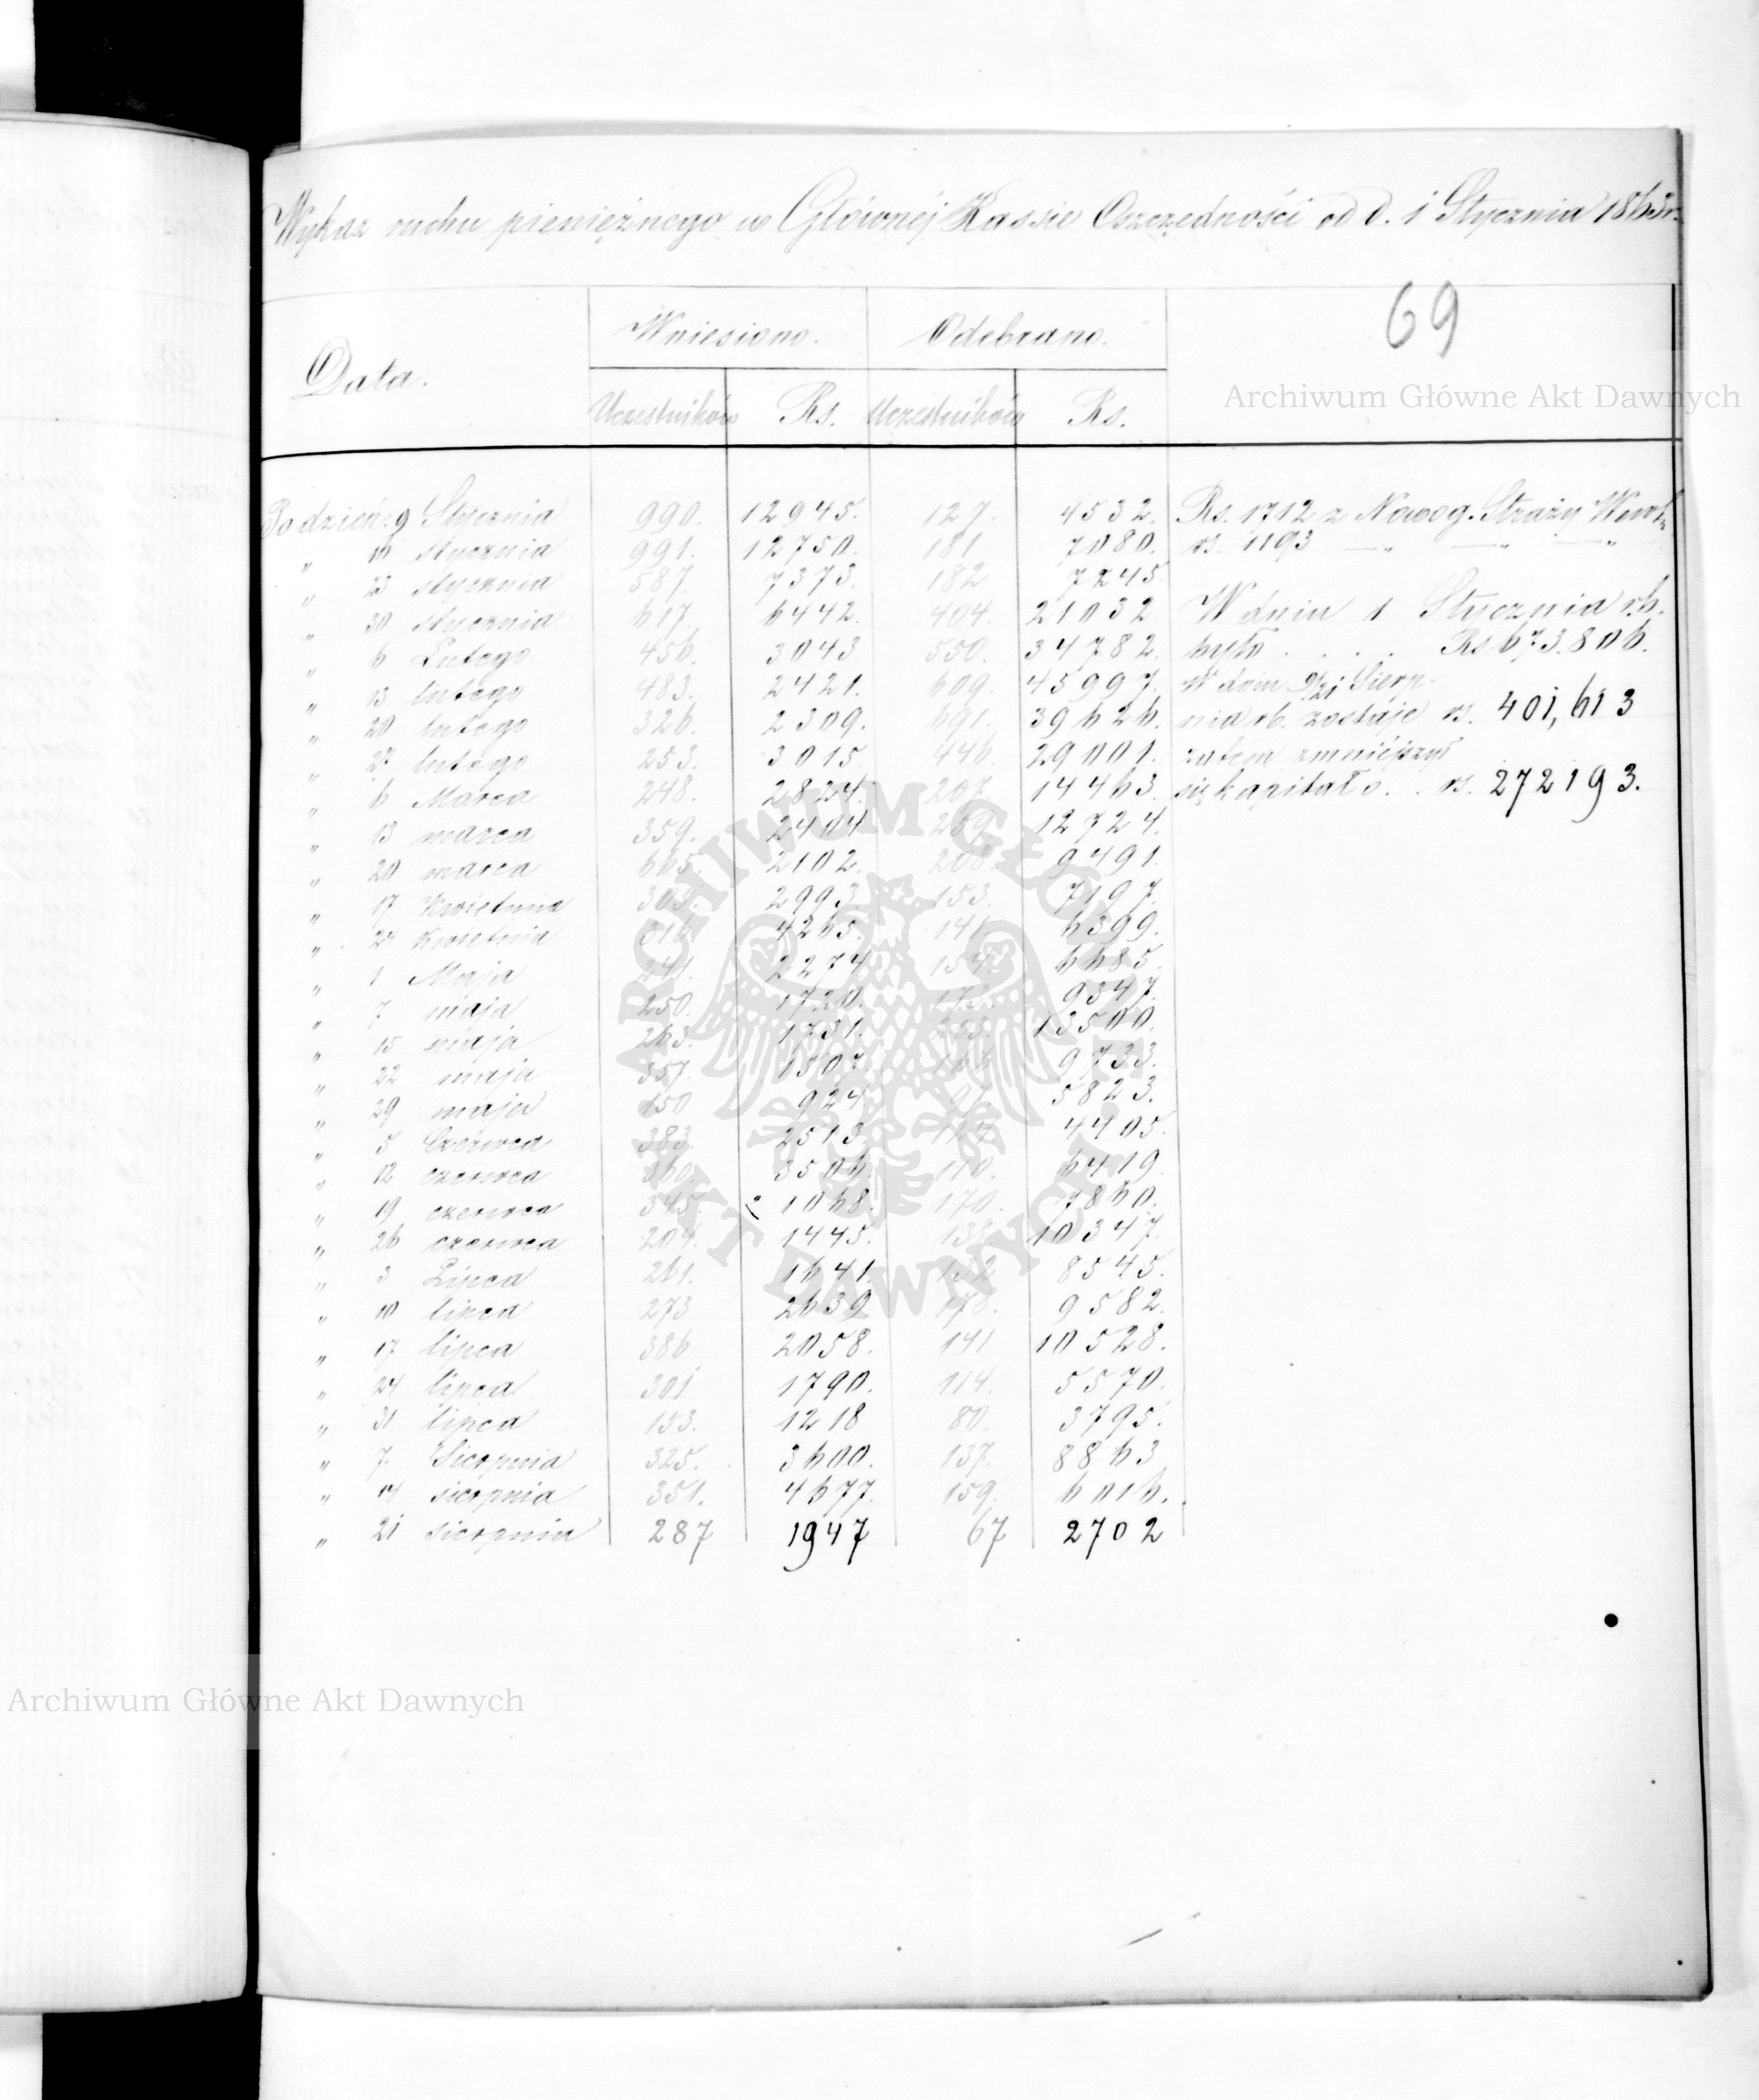 Wykaz ruchu pieniężnego w Głównéj Kassie Oszczędności od d. 1 Stycznia 1863 r.
69
Data. Wniesiono. Odebrano.
Uczestników Rs. Uczestników Rs.
Archiwum Główne Akt Dawnych
Po dzień: 9 Stycznia 990. 12945. 127. 4532. Rs. 1712 z Nowog. Straży
" 16 stycznia 991. 12750. 181 7080. rs. 1193 — " — " — "
" 23 stycznia 587. 7373. 182 7245
" 30 stycznia 617 6442. 404. 21032 W dniu 1 Stycznia rb.
" 6 Lutego 456. 3043 550. 34782. było . . . . Rs 673.806.
" 13 lutego 483. 2421. 609. 45997. W dniu 9/21 Sierp-
" 20 lutego 326. 2309. 691. 39626. nia rb. zostaje rs. 401,613
" 27 lutego 253. 3015. 446. 29001. zatem zmniéjszył
" 6 Marca 248. 2824. 207. 14463. się kapitał o . . rs. 272193.
" 13 marca 359. 2404 12724.
" 20 marca 665. 2102. 208. 9491.
" 17 Kwietnia 2993. 153. 7197.
" 24 kwietnia 316 4265. 141 6399.
" 1 Maja 241. 2274 154. 6685.
" 7 maja 250. 1720. 9347.
" 15 maja 263. 1731. 13500.
" 22 maja 357. 1507. 9733.
" 29 maja 150 924 5823.
" 5 Czerwca 383. 2513. 4405.
" 12 czerwca 360. 3506. 110. 6419.
" 19 czerwca 545. 1068. 170. 7860.
" 26 czerwca 204. 1445. 138. 10347.
" 3 Lipca 261. 1641. 132 8545.
" 10 lipca 273 2639 178. 9582.
" 17 lipca 386 2058. 141 10528.
" 24 lipca 301 1790. 114. 5570.
" 31 lipca 153. 1218 80. 3795.
" 7. Sierpnia 325. 3600. 137. 8863
" 14 sierpnia 351. 4677. 159. 6016.
" 21 sierpnia 287 1947 67 2702
ARCHIWUM GŁÓWNE AKT DAWNYCH
Archiwum Główne Akt Dawnych